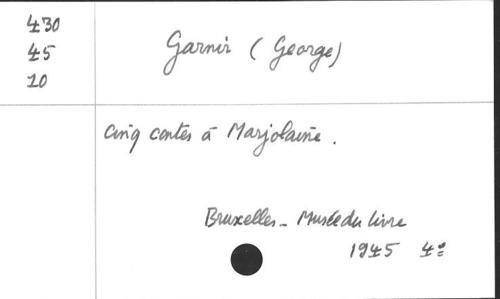 430
45
10
Garnir (George)
Cinq contes à Marjolaine.
Bruxelles - Musée du Livre
1945 4º